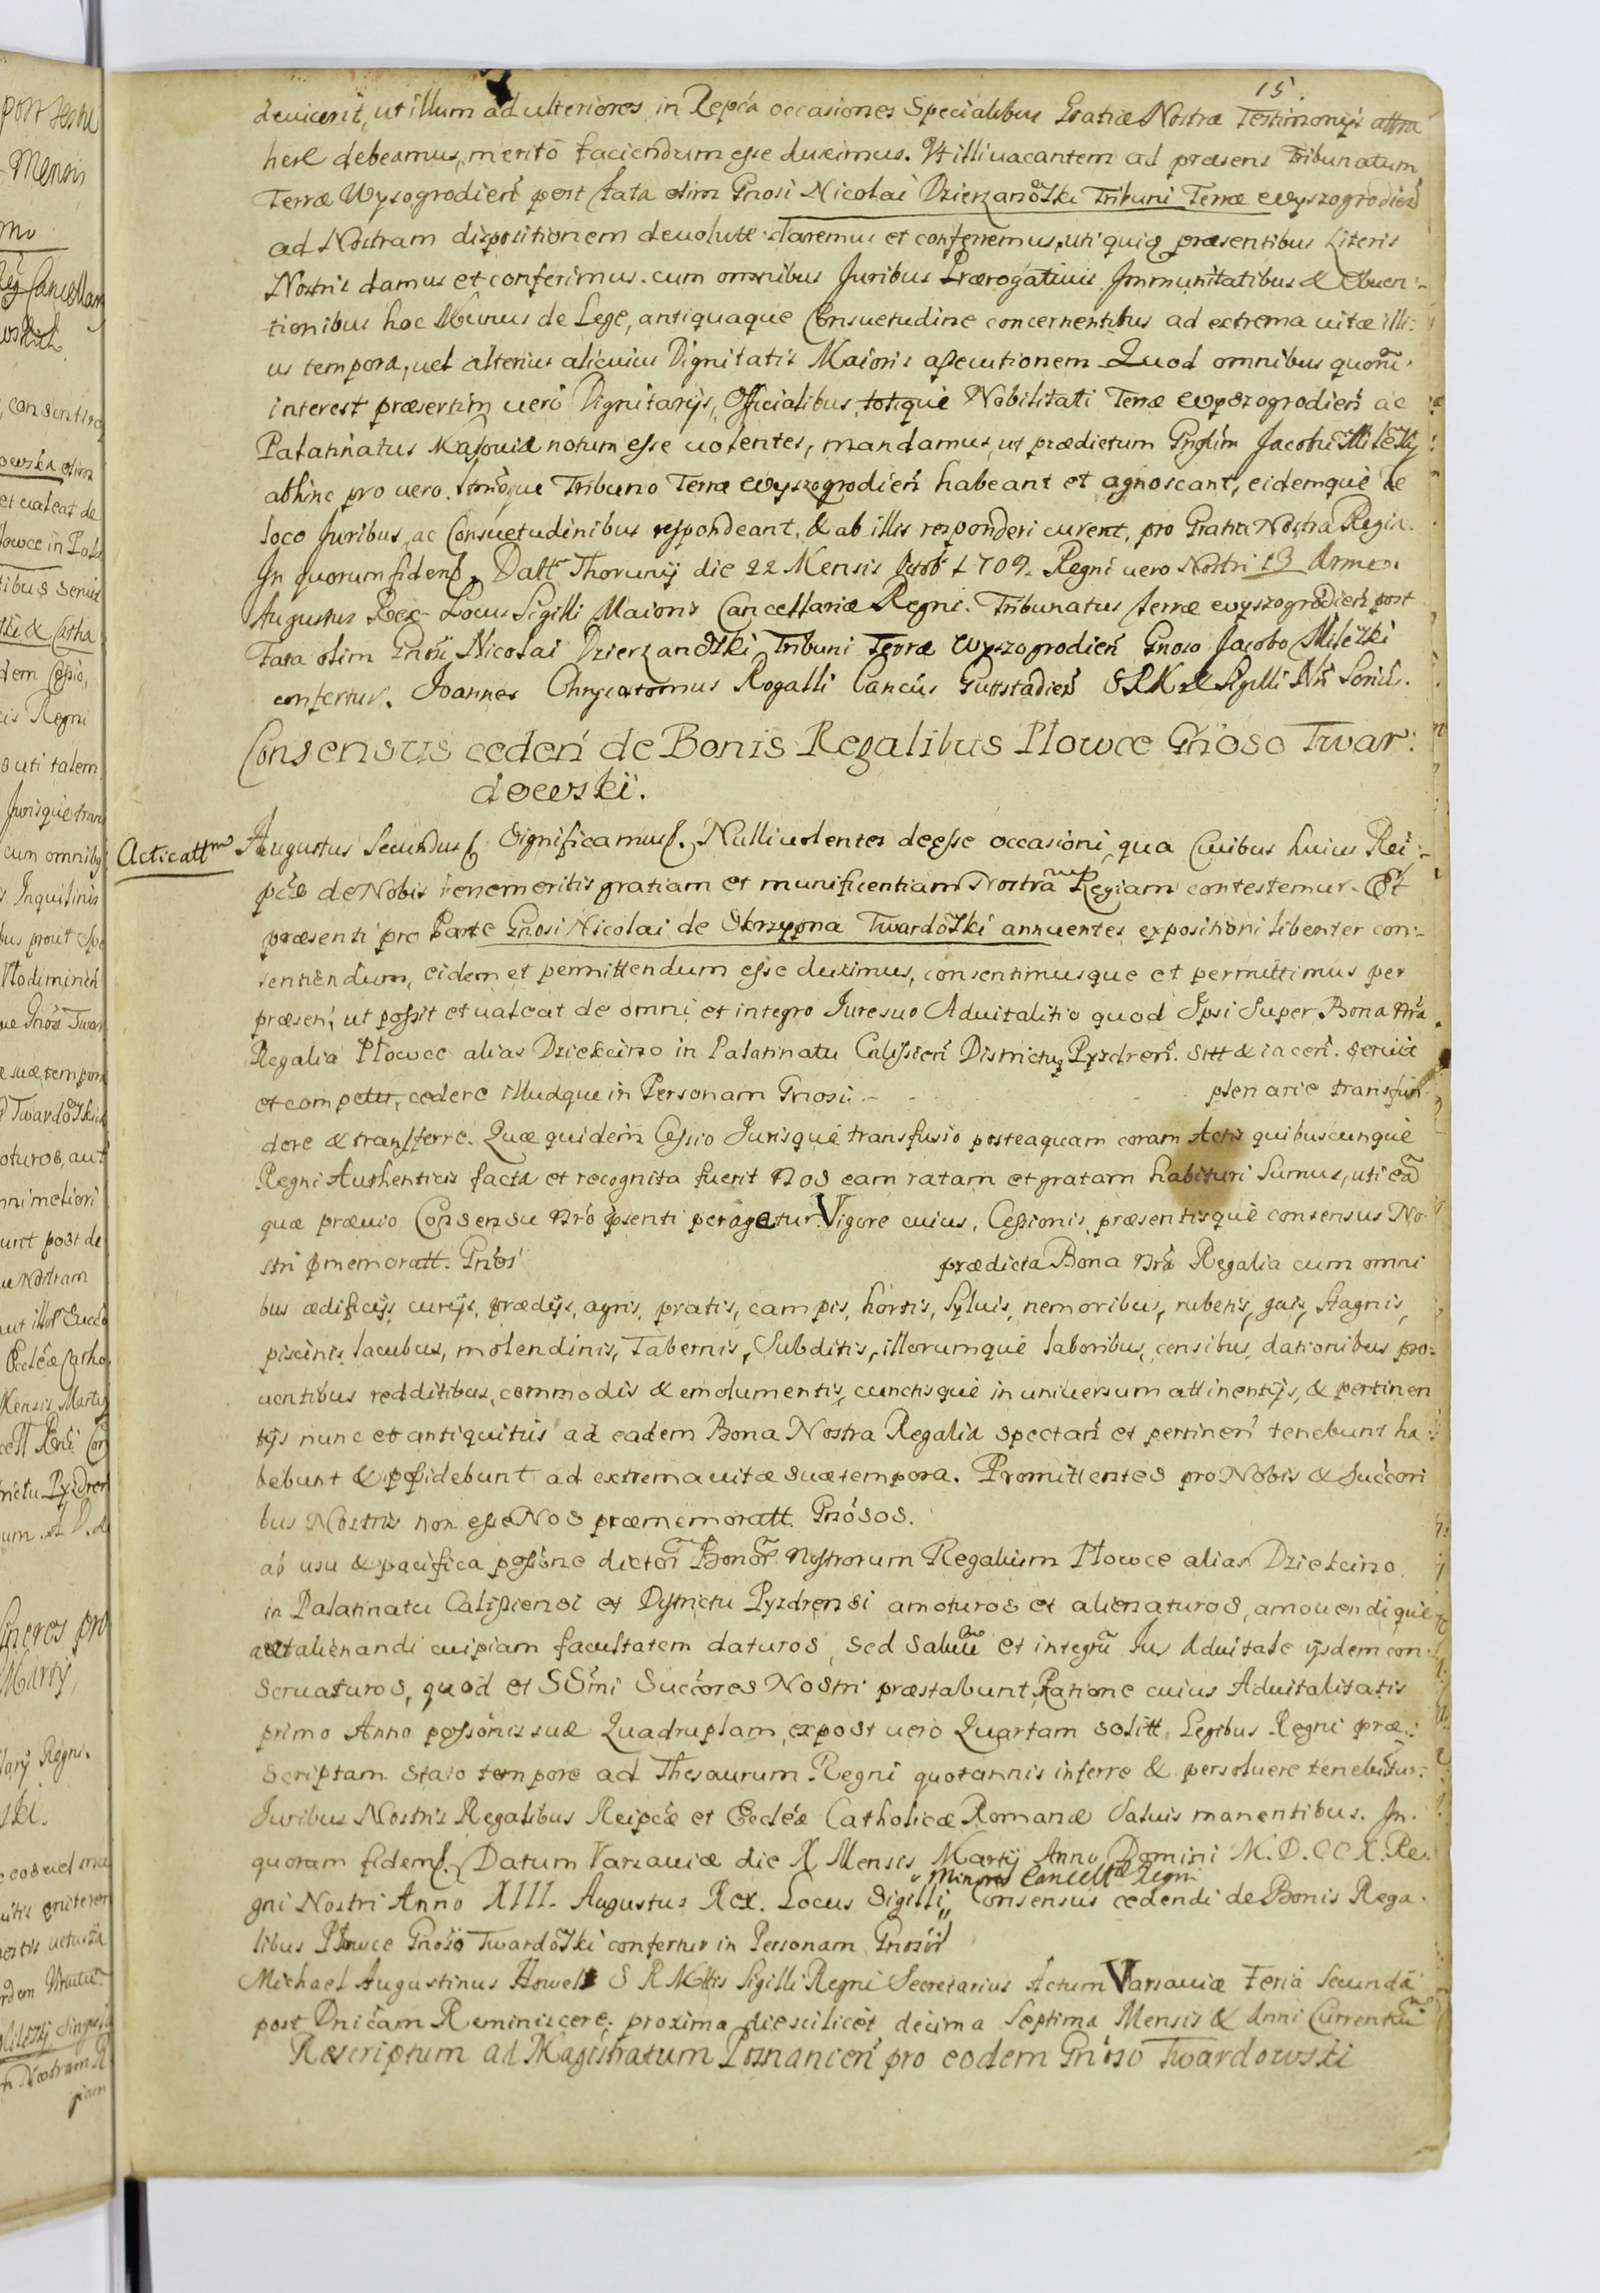 15.
devicerit, ut illum ad ulteriores in Repca occasiones Specialibus Gratiæ Nostræ Testimonijs attra
here debeamus, merito faciendum esse duximus. Ut illi vacantem ad præsens Tribunatum
Terræ Wysogrodien post fata olim Gnosi Nicolai Dzierzanowski Tribuni Terræ Wyszogrodien
ad Nostram dispositionem devolutt daremus et conferremus, uti quidem præsentibus Literis
Nostris damus et conferimus. cum omnibus Juribus Prærogativis Immunitatibus & Obven:
tionibus hoc Munus de Lege, antiquaque Consuetudine concernentibus ad extrema vitæ illi:
us tempora, vel alterius alicuius Dignitatis Maioris assecutionem. Quod omnibus quorū
interest præsertim vero Dignitarijs, Officialibus, totique Nobilitati Terræ Wyszogrodien ac
Palatinatus Masoviæ notum esse volentes, mandamus, ut prædictum Gnosum Jacobū Mileski
abhinc pro vero Tribuno Terræ Wyszogrodien habeant et agnoscant, eidemque de
loco Juribus, ac Consuetudinibus respondeant, & ab illis responderi curent, pro Gratia Nostra Regia.
In quorum fidem. Datt Thorunij die 22 Mensis Octob 1709. Regni vero Nostri 13 Anno.
Augustus Rex. Locus Sigilli Maioris Cancellariæ Regni. Tribunatus terræ Wyszogrodien post
Fata olim Gnosi Nicolai Dzierzanowski Tribuni Terræ Wyszogrodien Gnoso Jacobo Mileski
confertur. Joannes Chrysostomus Rogalli Cancus Guttstadien S R M & Sigilli
Consensus ceden de Bonis Regalibus Płowce Gnoso Twar:
dowski.
Acticattm
Augustus Secundus Significamus. Nulli volentes deesse occasioni, qua Civibus huius Rei:
pcæ de Nobis benemeritis gratiam et munificentiam Nostrā Regiam contestemur. Et
præsenti pro Parte Gnosi Nicolai de Skrzypna Twardowski annuentes expositioni libenter con:
sentiendum, eidem et permittendum esse duximus, consentimusque et permittimus per
præsen, ut possit et valeat de omni et integro Iure suo Advitalitio quod Ipsi Super Bona nra
Regalia Płowce alias Dziekcino in Palatinatu Calissien Districtuq Pyzdren. sitt & iacen. servit
et competit, cedere illudque in Personam Gnosi plenarie transfun
dere & transferre. Quæ quidem Cessio Jurisque transfusio posteaquam coram Actis quibuscunque
Regni Authenticis facta et recognita fuerit Nos eam ratam et gratam habituri sumus, uti eā
quæ prævio Consensu nro psenti peragetur. Vigore cuius, Cessionis, præsentisque consensus No
stri pmemoratt. Gnosi prædicta Bona nra Regalia cum omni
bus ædificijs, curijs, prædijs, agris, pratis, campis, hortis, sylvis, nemoribus, rubetis, gais, stagnis,
piscinis lacubus, molendinis, Tabernis, Subditis, illorumque laboribus, censibus, dationibus pro:
ventibus redditibus, commodis & emolumentis, cunctisque in universum attinentijs, & pertinen
tijs nunc et antiquitus ad eadem Bona Nostra Regalia spectan et pertinen tenebunt ha:
bebunt & possidebunt ad extrema vitæ suæ tempora. Promittentes pro Nobis & Succori
bus Nostris non esse Nos præmemoratt. Gnosos.
ab usu & pacifica possione dictor Bonor Nostrorum Regalium Płowce alias Dziekcino
in Palatinatu Calissiensi et Districtu Pyzdrensi amoturos et alienaturos, amovendique
aut alienandi cuipiam facultatem daturos, sed salvū et integrū Jus Advitale ijsdem con:
servaturos, quod et SSmi Succores Nostri præstabunt, Ratione cuius Advitalitatis
primo Anno possonis suæ Quadruplam, expost vero Quartam solitt. Legibus Regni præ:
scriptam stato tempore ad Thesaurum Regni quotannis inferre & persolvere tenebitur.
Juribus Nostris Regalibus Reipcæ et Eccleæ Catholicæ Romanæ Salvis manentibus. In
quorum fidem. Datum Varsaviæ die X Mensis Martij Anno Domini M.D.CC X. Re.
gni Nostri Anno XIII. Augustus Rex. Locus Sigilli Minoris Cancellæ Regni Consensus cedendi de Bonis Rega.
libus Płowce Gnoso Twardowski confertur in Personam Gnosor
Michael Augustinus Howel S R Mttis Sigilli Regni Secretarius Actum Varsaviæ Feria Secunda
post Dnicam Reminiscere. proxima die scilicet decima Septima Mensis & Anni Currentiū
Rescriptum ad Magistratum Posnanien pro eodem Gnoso Twardowski